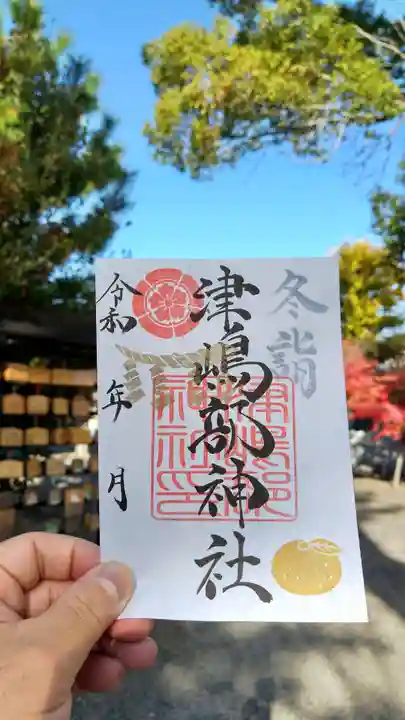 冬詣
津嶋部神社
令和 年 月
津嶋部
神社印